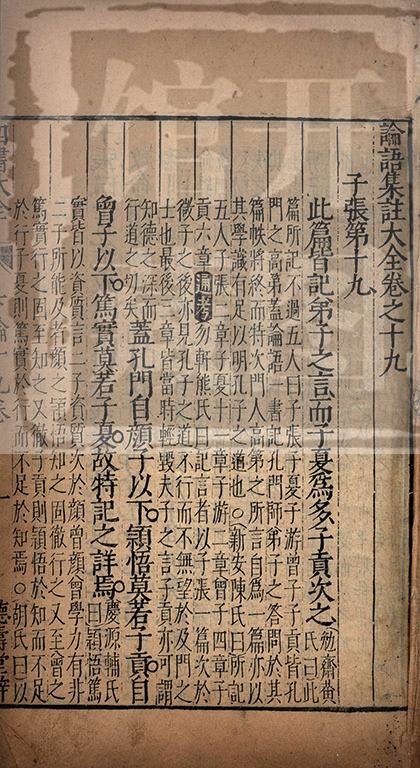 論語集註大全卷之十九
子張第十九
此篇皆記弟子之言而子夏爲多子貢次之
勉齋黃
氏曰此
篇所記不過五人曰子張子夏子游曾子子貢皆孔
門之高弟蓋論語一書記孔門師弟子之答問於其
篇帙將終而特次門人高第之所言自爲一篇亦以
其學識有足以明孔子之道也○新安陳氏曰所記
五人子張一章子夏十一章子游二章曾子四章子
貢六章通考勿軒熊氏曰記言者以子張一篇次於
微子之後亦見孔子之道不行而不無望於及門之
士也最後三章皆當時輕毀夫子之言子貢亦可謂
知德之深而
行道之切矣
蓋孔門自顏子以下穎悟莫若子貢自
曾子以下篤實莫若子夏故特記之詳焉
慶源輔氏
曰穎悟篤
實皆以資質言二子資質次於顏曾顏曾學力有非
二子所能及者顏之穎悟知之固徹行之又至曾之
篤實行之固至知之又徹子貢則穎悟於知而不足
於行子夏則篤實於行而不足於知焉○胡氏曰以
四書大全
論十九卷
一
德壽堂梓